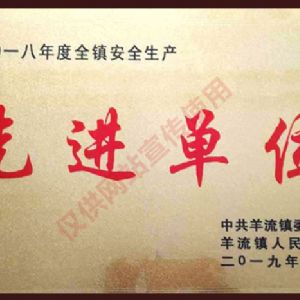 一八年度全镇安全生产
先进单位
中共羊流镇委
羊流镇人民
二〇一九年
仅供网站宣传使用